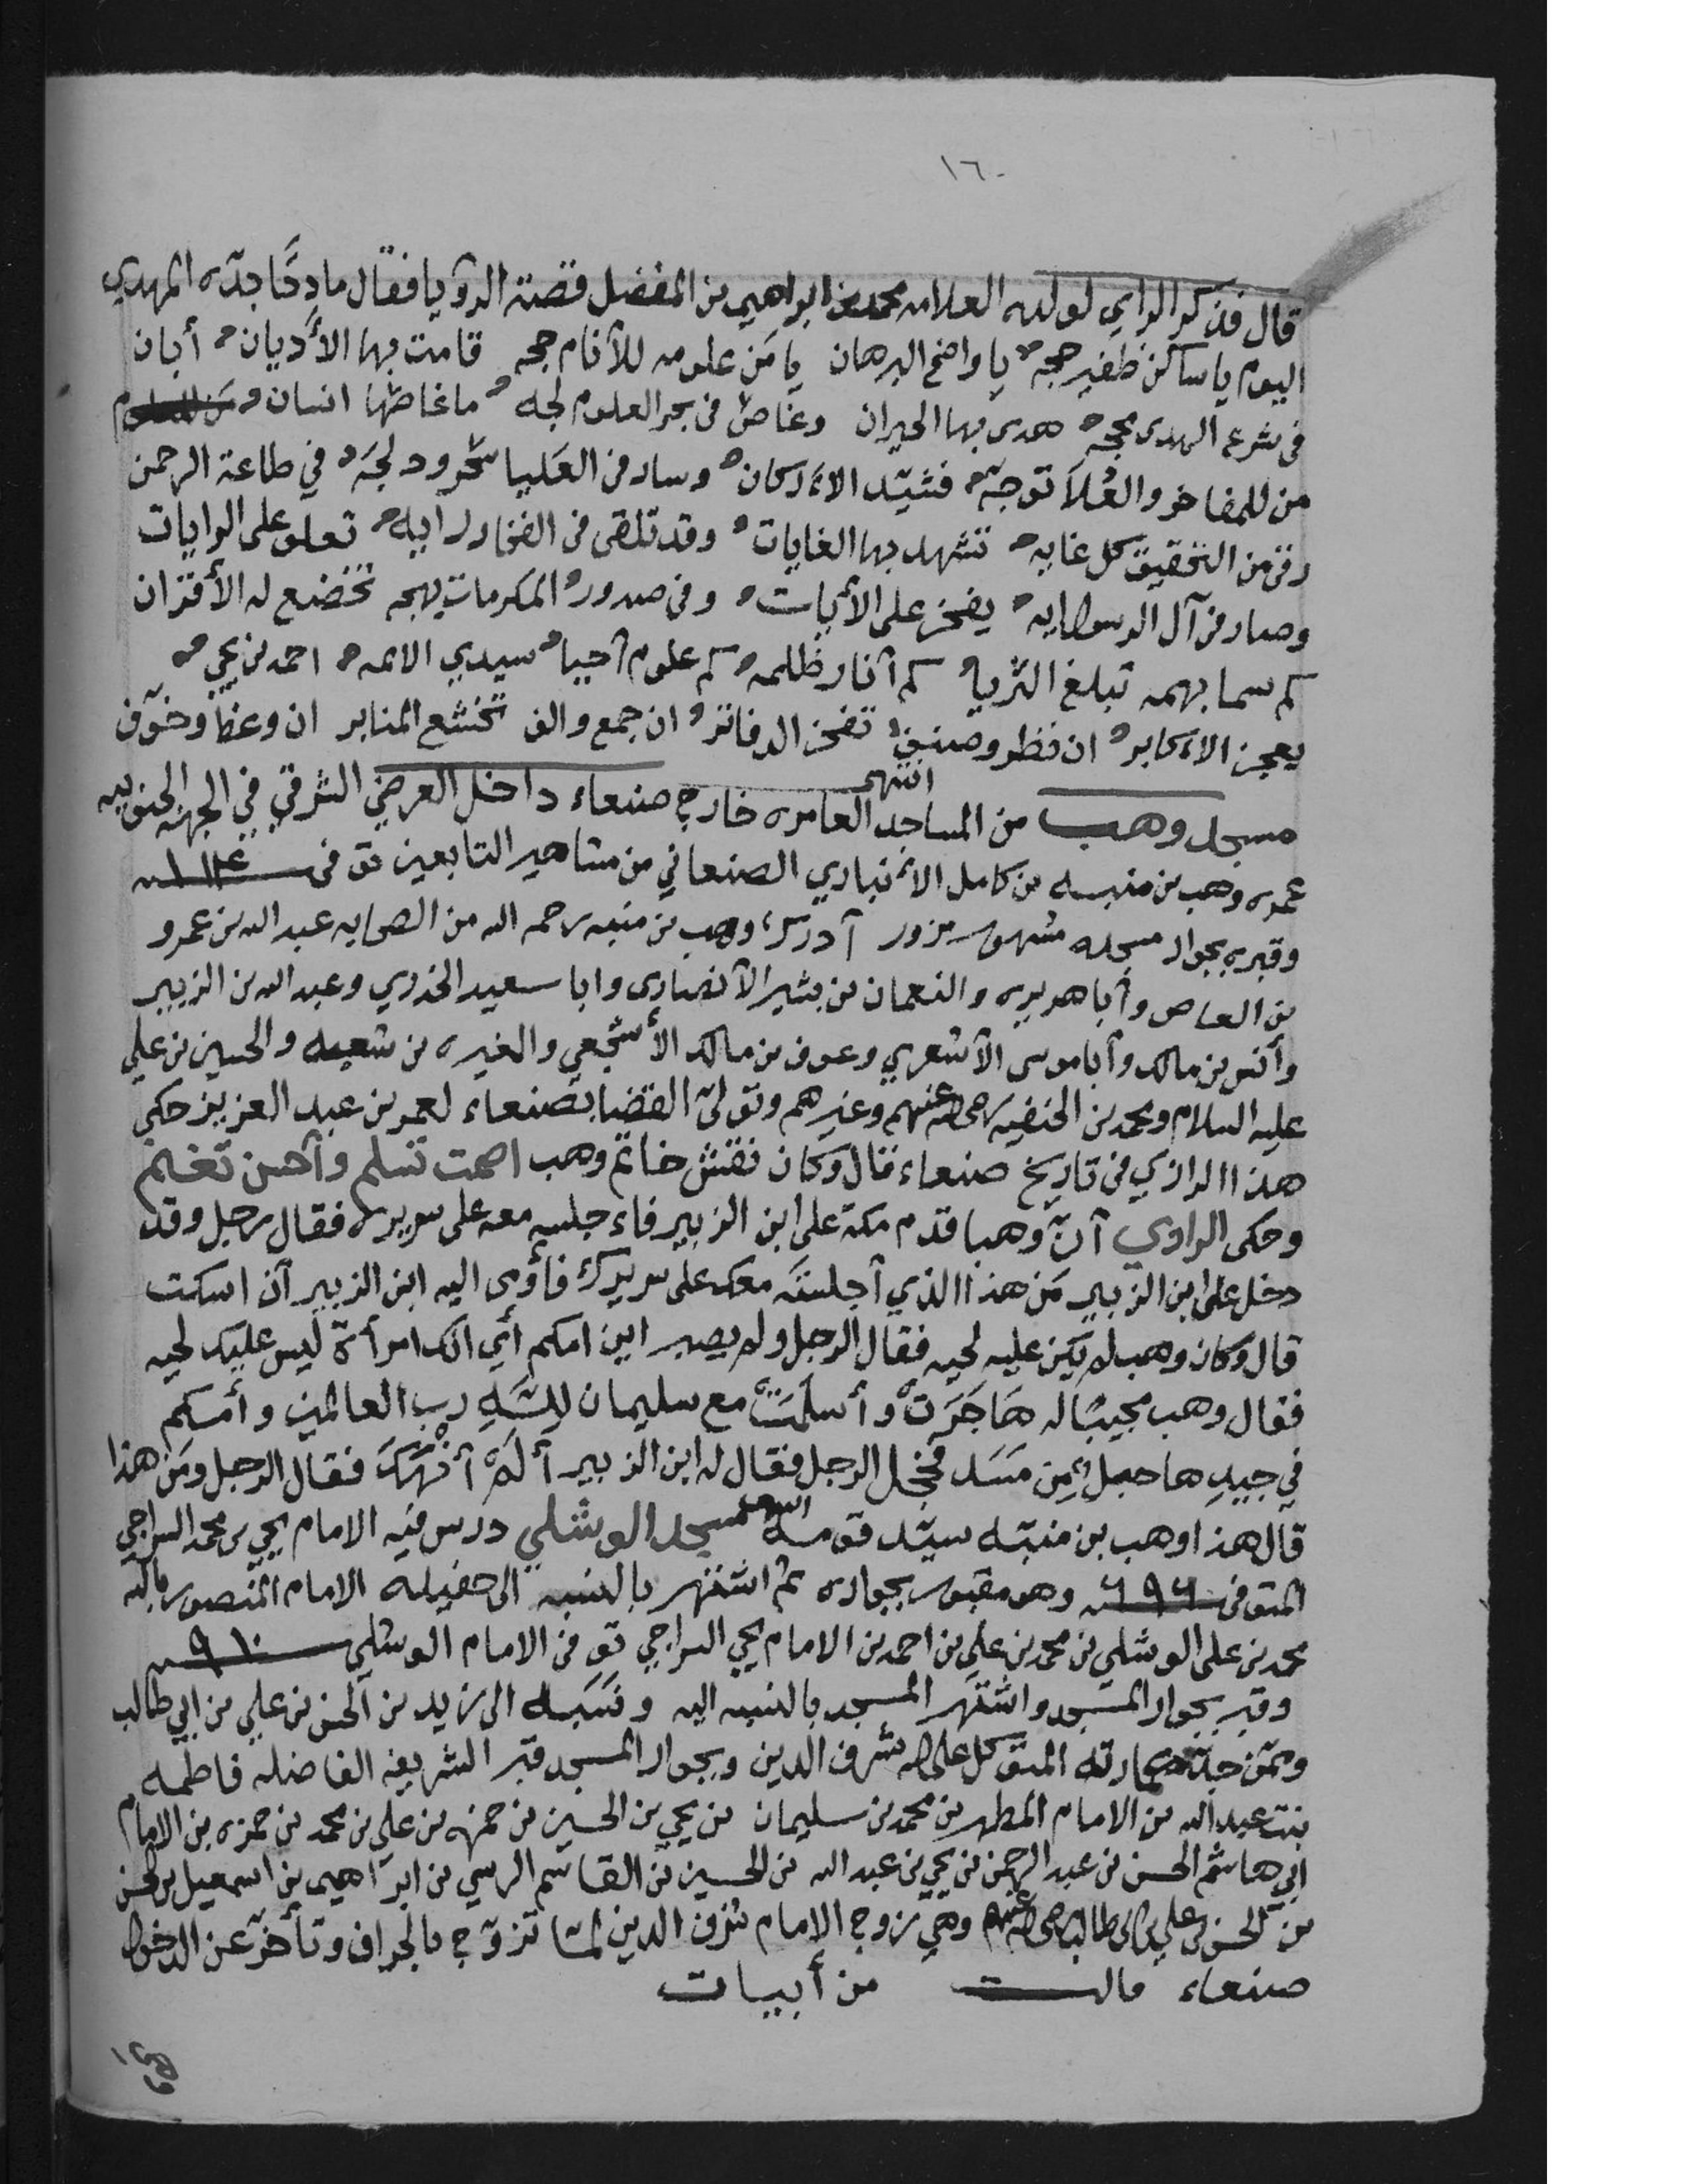 ١٦٠
قال فذكر الراي لولده العلامه محمد بن ابراهيم بن المفضل قصة الرؤيا فقال مادحًا جدّه المهدي
اليوم يا ساكن ظفير حجه يا واضح البرهان يا مَن علومه للأنام حجه قامت بها الأديان أبان
في شرع الهدى محجه هدى بها الحيران وغاص في بحر العلوم لجه ما غاصها انسان
من للمفاخر والعُلَا توجّه فشيّد الأركان وساد في العَليا ودلجَه في طاعة الرحمن
رقى من التحقيق كل غايه تشهد بها الغايات وقد تلقى في الفخار رايه تعلو على الرايات
وصار في آل الرسول ايه يفخر على الأيات وفي صدور المكرمات بهجه تخضع له الأقران
كم سما بهمه تبلغ الثريا كم أنار ظلمه كم علوم أحيا سيدي الائمه احمد بن يحيى
يعجز الأكابر ان نظر وصنف تفخر الدفاتر ان جمع والف تخشع المنابر ان وعظ وخوّف
انتهى
مسجد وهب من المساجد العامره خارج صنعاء داخل العرضي الشرقي في الجهه الجنوبيه
عمره وهب بن منبه بن كامل الأنباري الصنعاني من مشاهير التابعين توفى سنه ١١٤
وقبره بجوار مسجده مشهور مزور أدرك وهب بن منبه رحمه الله من الصحابه عبد الله بن عمرو
بن العاص وأبا هريره والنعمان بن بشير الأنصاري وابا سعيد الخدري وعبد الله بن الزبير
وأنس بن مالك وأبا موسى الأشعري وعوف بن مالك الأشجعي والمغيره بن شعبه والحسين بن علي
عليه السلام ومحمد بن الحنفيه رضي الله عنهم وغيرهم وتولى القضا بصنعاء لعمر بن عبد العزيز حكى
هذا الرازي في تاريخ صنعاء قال وكان نقش خاتم وهب اصمت تسلم وأحسن تغنم
وحكى الراوي أنّ وهبا قدم مكة على ابن الزبير فاء جلسه معه على سريره فقال رجل وقد
دخل على ابن الزبير مَن هذا الذي أجلسته معك على سريرك فأومى اليه ابن الزبير أن اسكت
قال وكان وهب لم يكن عليه لحيه فقال الرجل ولم يصبر اين امكم أي انك امرأة ليس عليك لحيه
فقال وهب مجيبًا له هَاجَرَتْ وأسلَمَتْ مع سليمان للهِ رب العالمين وأمكم
في جيدِها حبل مِن مَسَد فخجل الرجل فقال له ابن الزبير أَلَمْ أنْهَكَ فقال الرجل ومَن هذا
قال هذا وهب بن منبّه سيّد قومه انتهى مسجد الوشلي درس فيه الامام يحيى بن محمد السراجي
المتوفى سنه ٦٩٦ وهو مقبور بجواره ثم اشتهر بالنسبه الى حفيده الامام المنصور بالله
محمد بن علي الوشلي بن محمد بن علي بن احمد بن الامام يحيى السراجي توفى الامام الوشلي سنه ٩١٠
وقبر بجوار المسجد واشتهر المسجد بالنسبه اليه ونَسَبه الى زيد بن الحسن بن علي بن ابي طالب
وممّن جدّد عمارته المتوكل على الله شرف الدين وبجوار المسجد قبر الشريفه الفاضله فاطمه
بنت عبد الله بن الامام المطهر بن محمد بن سليمان بن يحيى بن الحسين بن حمزه بن علي بن محمد بن حمزه بن الامام
ابي هاشم الحسن بن عبد الرحمن بن يحيى بن عبد الله بن الحسين بن القاسم الرسي بن ابراهيم بن اسمعيل بن الحسن
بن الحسن بن علي بن ابي طالب رضي الله عنهم وهي زوج الامام شرف الدين لمّا تزوّج بالجراف وتأخّر عن الدخول
صنعاء قالت من أبيات